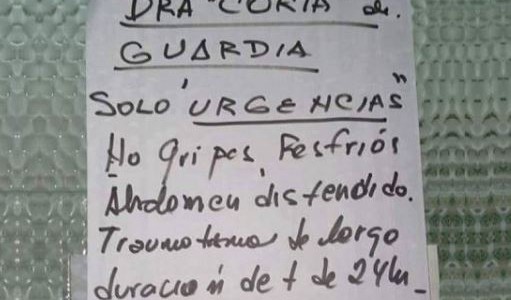 DRA CORIA de.
GUARDIA
SOLO "URGENCIAS"
No gripes, Resfriós
Abdomen distendido.
Traumatismo de largo
duración de + de 24hs_